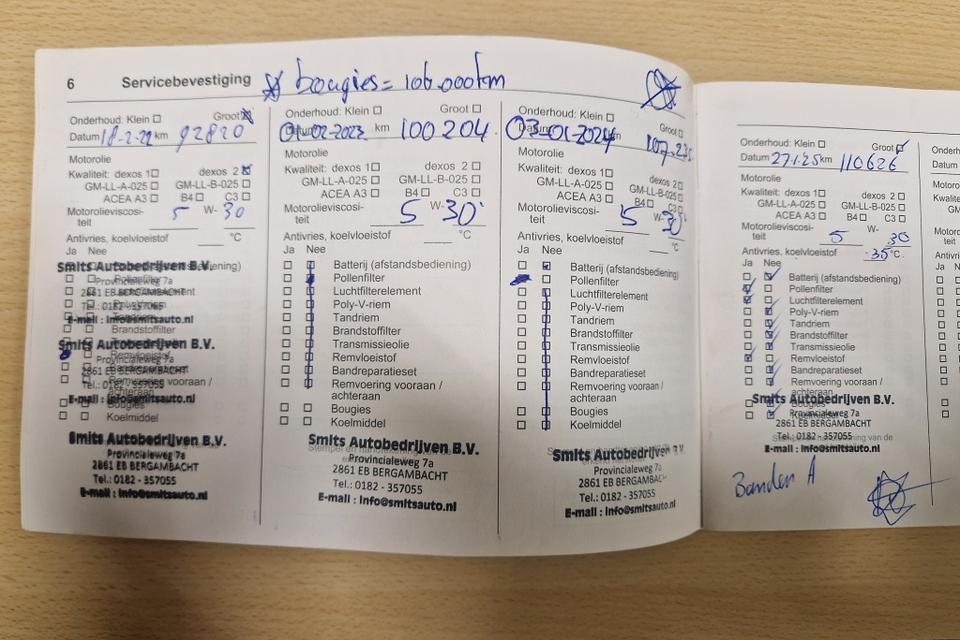 6 Servicebevestiging
bougies = 106.000km
Onderhoud: Klein Groot
Datum 18-2-22 km 92820
Motorolie
Kwaliteit: dexos 1 dexos 2
GM-LL-A-025 GM-LL-B-025
ACEA A3 B4 C3
Motorolieviscosi-teit 5 W- 30
Antivries, koelvloeistof °C
Ja Nee
Smits Autobedrijven B.V.
Provincialeweg 7a
2861 EB BERGAMBACHT
Tel.: 0182 - 357055
E-mail : info@smitsauto.nl
Brandstoffilter
Smits Autobedrijven B.V.
Remvloeistof
Provincialeweg 7a
2861 EB BERGAMBACHT
Tel.: 0182 - 357055
Remvoering vooraan /
achteraan
E-mail : info@smitsauto.nl
Bougies
Koelmiddel
Smits Autobedrijven B.V.
Provincialeweg 7a
2861 EB BERGAMBACHT
Tel.: 0182 - 357055
E-mail : info@smitsauto.nl
Onderhoud: Klein Groot
Datum 01-02-2023 km 100204
Motorolie
Kwaliteit: dexos 1 dexos 2
GM-LL-A-025 GM-LL-B-025
ACEA A3 B4 C3
Motorolieviscosi-teit 5 W- 30
Antivries, koelvloeistof °C
Ja Nee
Batterij (afstandsbediening)
Pollenfilter
Luchtfilterelement
Poly-V-riem
Tandriem
Brandstoffilter
Transmissieolie
Remvloeistof
Bandreparatieset
Remvoering vooraan /
achteraan
Bougies
Koelmiddel
Smits Autobedrijven B.V.
Provincialeweg 7a
2861 EB BERGAMBACHT
Tel.: 0182 - 357055
E-mail : info@smitsauto.nl
Onderhoud: Klein Groot
Datum 03-01-2024 km
Motorolie
Kwaliteit: dexos 1 dexos 2
GM-LL-A-025 GM-LL-B-025
ACEA A3 B4 C3
Motorolieviscosi-teit 5 W- 30
Antivries, koelvloeistof °C
Ja Nee
Batterij (afstandsbediening)
Pollenfilter
Luchtfilterelement
Poly-V-riem
Tandriem
Brandstoffilter
Transmissieolie
Remvloeistof
Bandreparatieset
Remvoering vooraan /
achteraan
Bougies
Koelmiddel
Smits Autobedrijven B.V.
Provincialeweg 7a
2861 EB BERGAMBACHT
Tel.: 0182 - 357055
E-mail : info@smitsauto.nl
Onderhoud: Klein Groot
Datum 27.1.25 km 110626
Motorolie
Kwaliteit: dexos 1 dexos 2
GM-LL-A-025 GM-LL-B-025
ACEA A3 B4 C3
Motorolieviscosi-teit 5 W- 30
Antivries, koelvloeistof -35 °C
Ja Nee
Batterij (afstandsbediening)
Pollenfilter
Luchtfilterelement
Poly-V-riem
Tandriem
Brandstoffilter
Transmissieolie
Remvloeistof
Bandreparatieset
Remvoering vooraan /
achteraan
Smits Autobedrijven B.V.
Provincialeweg 7a
2861 EB BERGAMBACHT
Tel.: 0182 - 357055
E-mail : info@smitsauto.nl
Banden A